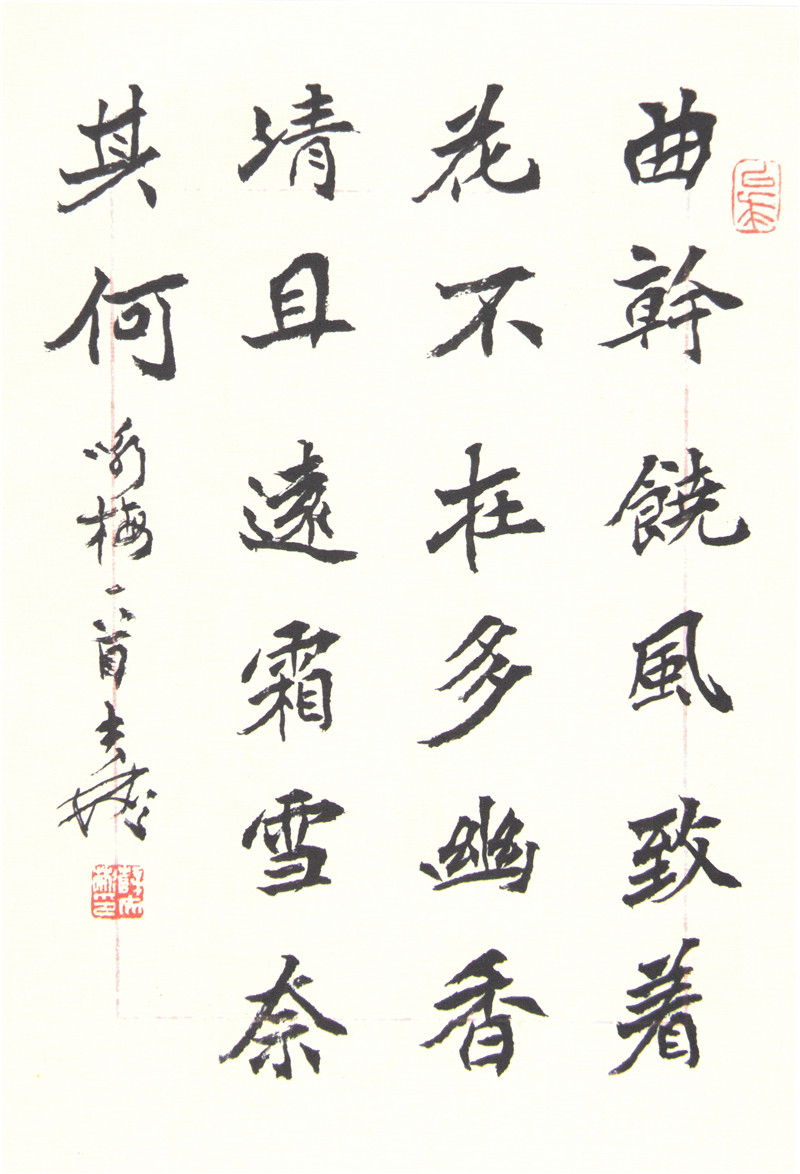 曲幹饒風致着
花不在多幽香
清且遠霜雪奈
其何
詠梅一首